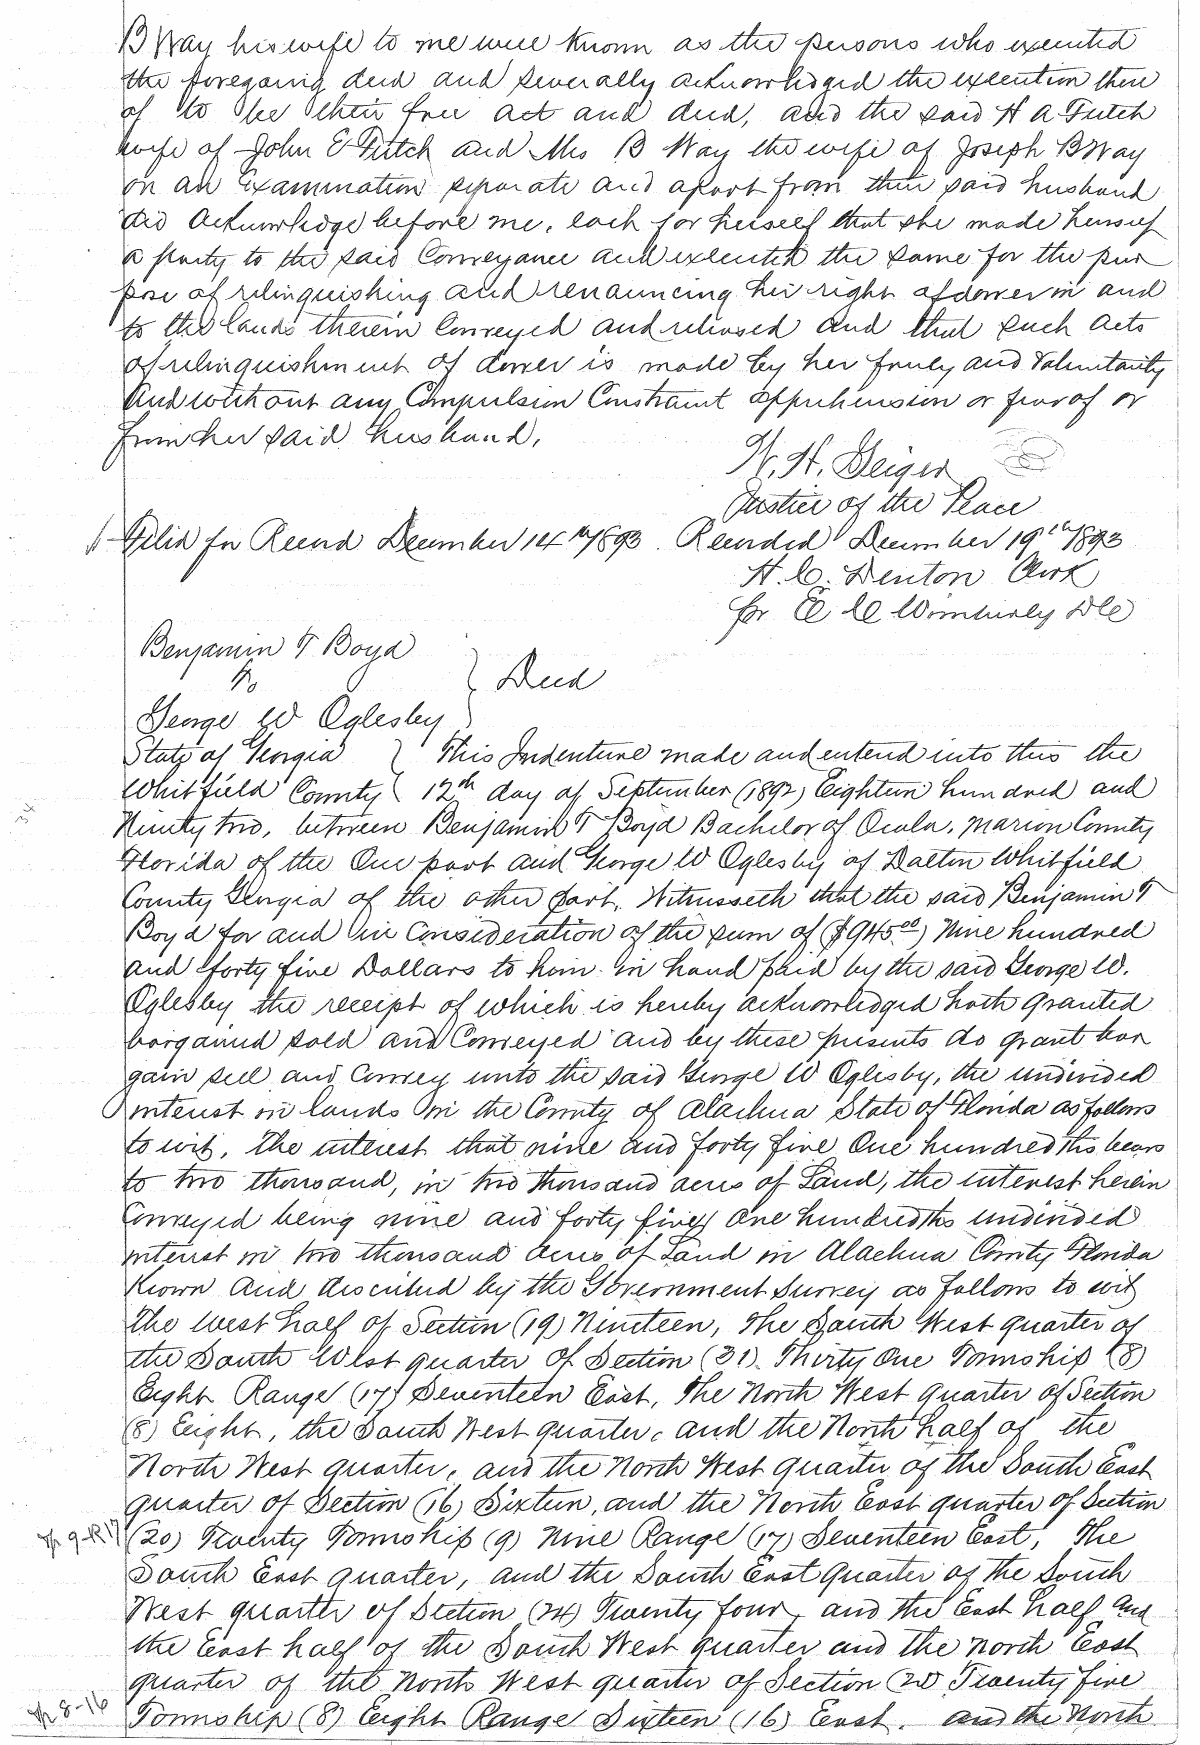 B Way his wife to me well known as the persons who executed
the foregoing deed and severally acknowledged the execution there
of to be their free act and deed, and the said H A Futch
wife of John E Futch and Mrs B Way the wife of Joseph B Way
on an Examination separate and apart from their said husband
did acknowledge before me, each for herself that she made herself
a party to the said Conveyance and executed the same for the pur
pose of relinquishing and renouncing her right of dower in and
to the lands therein Conveyed and released and that such acts
of relinquishment of dower is made by her freely and Voluntarily
And without any Compulsion Constraint apprehension or fear of or
from her said husband.
W. H. Geiger
Justice of the Peace
Filed for Record December 14th 1893. Recorded December 19th 1893
H. C. Denton Clerk
for E C Wimberly DC
Benjamin T Boyd
To
Deed
George W Oglesby
State of Georgia } This Indenture made and enterd into this the
Whitfield County } 12th day of September (1892) Eighteen hundred and
Ninety two, between Benjamin T Boyd Bachelor of Ocala, Marion County
Florida of the One part and George W Oglesby of Dalton Whitfield
County Georgia of the other part, Witnesseth that the said Benjamin T
Boyd for and in Consideration of the sum of ($945.00) Nine hundred
and forty five Dollars to him in hand paid by the said George W.
Oglesby the receipt of which is hereby acknowledged hath granted
bargained sold and Conveyed and by these presents do grant bar
gain sell and Convey unto the said George W Oglesby, the undivided
interest in lands in the County of Alachua State of Florida as follows
to wit, the interest that nine and forty five One hundredths bears
to two thousand, in two thousand acres of Land, the interest herein
Conveyed being nine and forty five One hundredths undivided
interest in two thousand acres of Land in Alachua County Florida
Known And discribed by the Government Survey as follows to wit
The West half of Section (19) Nineteen, The South West quarter of
the South West quarter of Section (31) Thirty One Township (8)
Eight Range (17) Seventeen East, The North West quarter of Section
(8) Eight, the South West quarter, and the North half of the
North West quarter, and the North West quarter of the South East
quarter of Section (16) Sixteen, and the North East quarter of Section
Tp 9-R17
(20) Twenty Township (9) Nine Range (17) Seventeen East, The
South East quarter, and the South East quarter of the South
West quarter of Section (24) Twenty four, and the East half and
the East half of the South West quarter and the North East
quarter of the North West quarter of Section (25) Twenty five
Tp 8-16
Township (8) Eight Range Sixteen (16) East. and the North